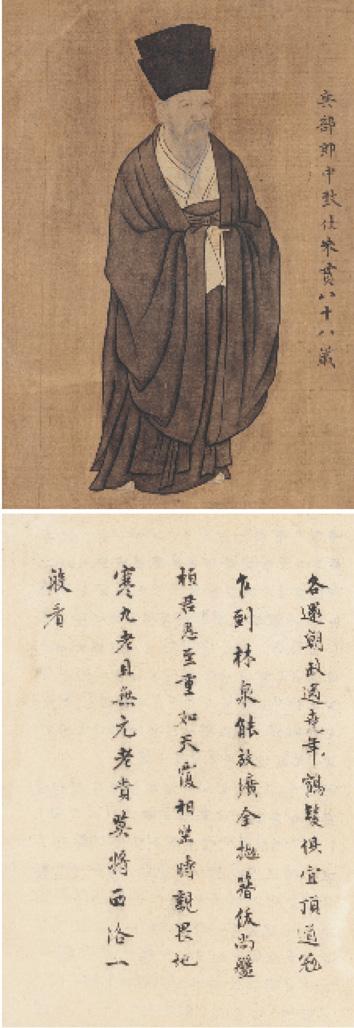 兵部郎中致仕朱貫八十八歲
各還朝政遇堯年鶴髮俱宜頂道冠
乍到林泉能放曠全拋簪紱尚盤
桓君恩至重如天覆相坐時親畏地
寒九老且無元老貴莫將西洛一
般看